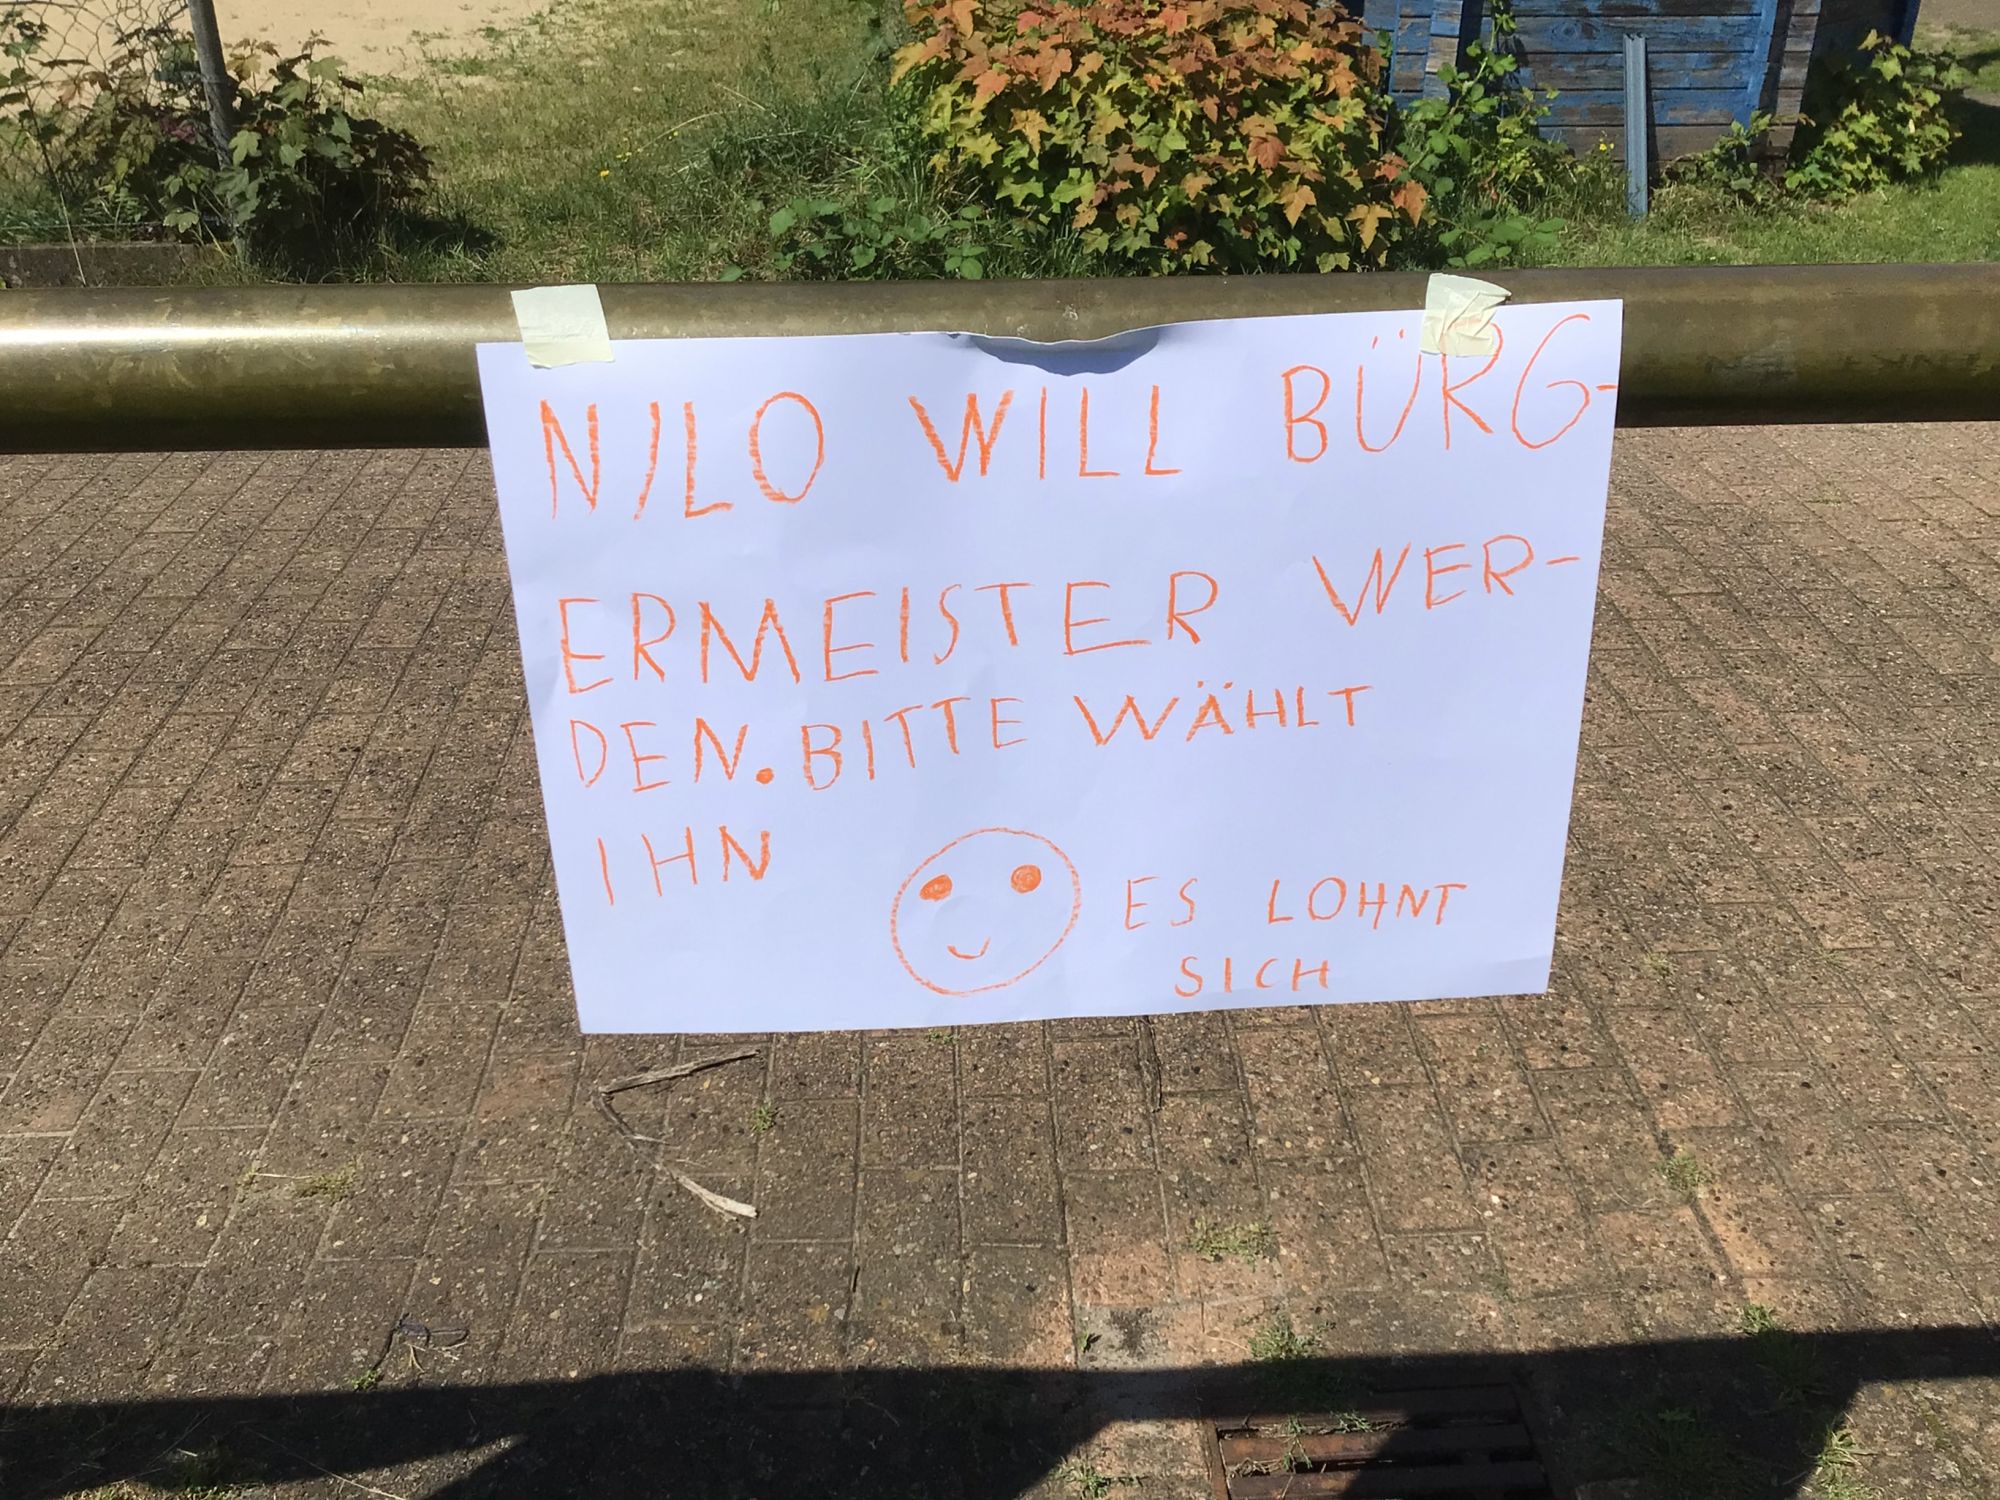 NILO WILL BÜRG-
ERMEISTER WER-
DEN. BITTE WÄHLT
IHN
ES LOHNT
SICH